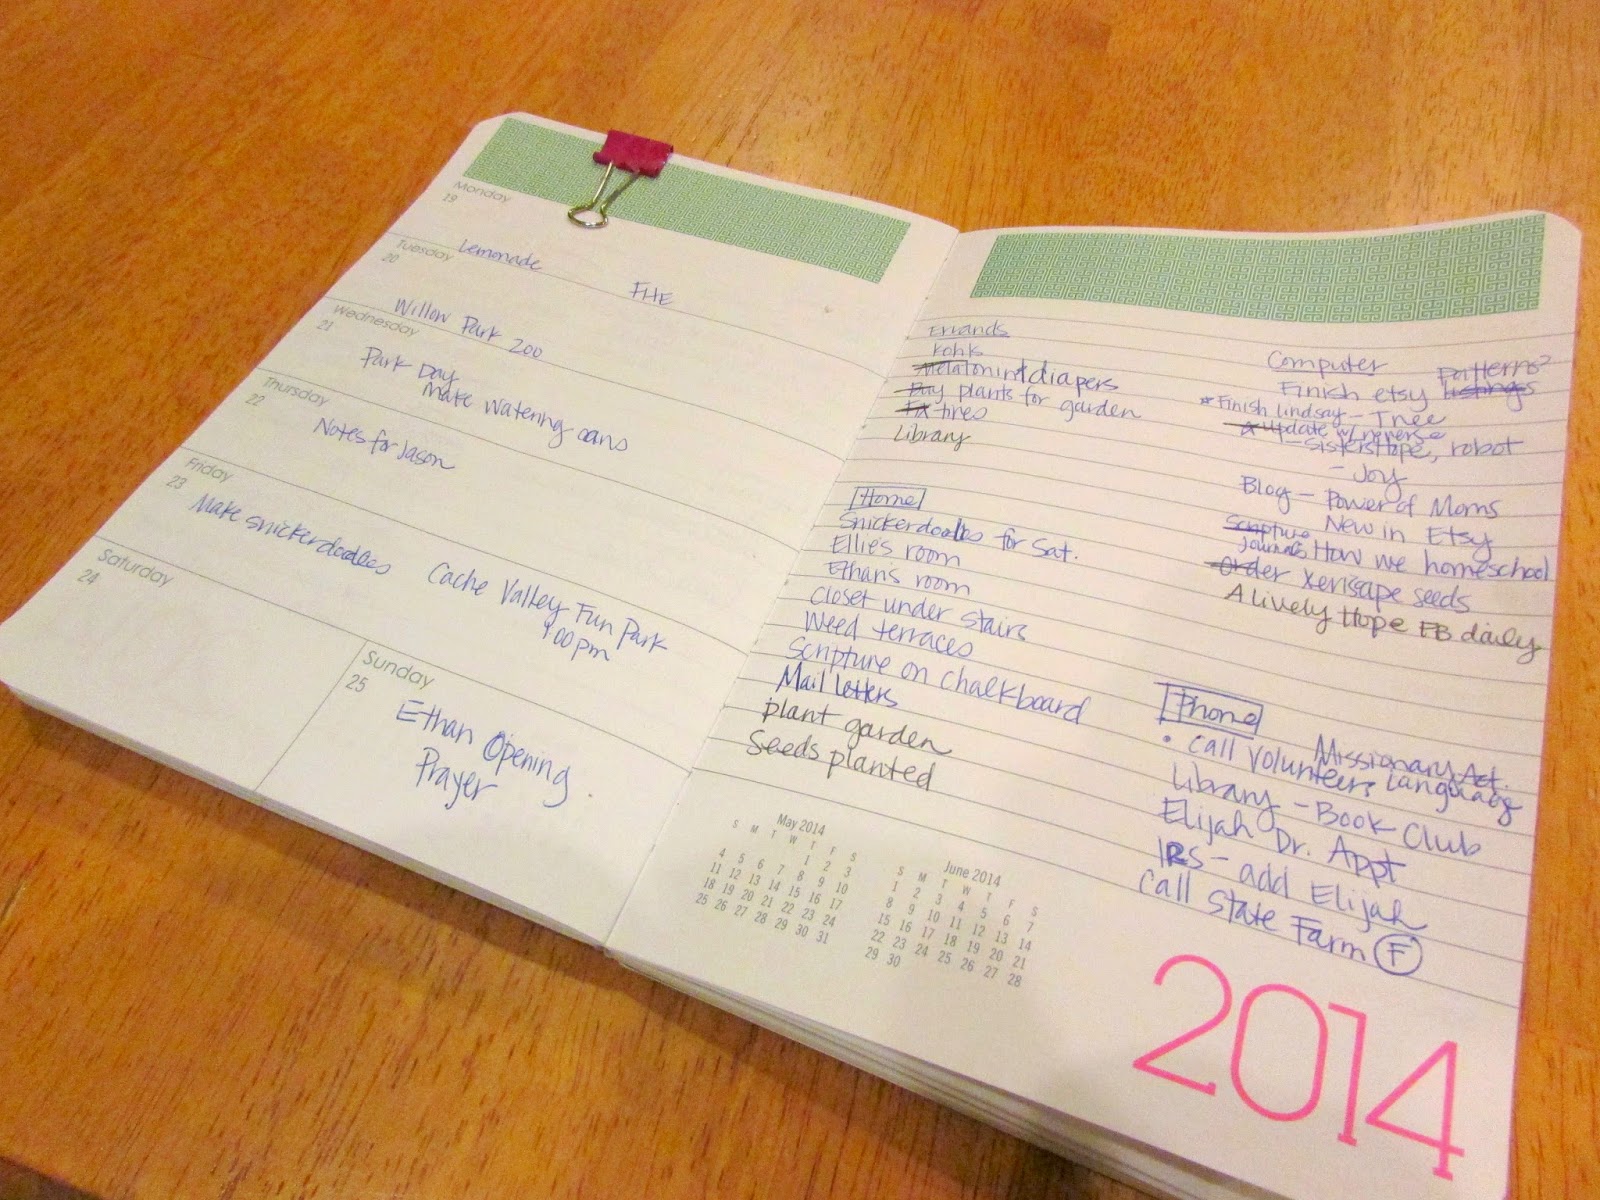 Monday
19
Lemonade
FHE
Tuesday
20
Willow Park Zoo
Wednesday
21
Park Day
Make watering cans
Thursday
22
Notes for Jason
Friday
23
Make snickerdoodles
Cache Valley Fun Park
1:00pm
Saturday
24
Sunday
25
Ethan Opening
Prayer
Errands
Kohls
Melatonin & diapers
Buy plants for garden
Fix tires
Library
Home
Snickerdoodles for Sat.
Ellie's room
Ethan's room
Closet under stairs
Weed terraces
Scripture on chalkboard
Mail letters
plant garden
Seeds planted
Computer
patterns
Finish etsy listings
* Finish lindsay - Tree
Update w/ reverse
- Sisters Hope, robot
- Joy
Blog - Power of Moms
New in Etsy
Scripture
Journals
How we homeschool
Order xeriscape seeds
A lively Hope FB daily
Phone
Missionary Act.
• Call volunteers Language
Library - Book Club
Elijah Dr. Appt
IRS - add Elijah
Call State Farm F
May 2014
S M T W T F S
1 2 3
4 5 6 7 8 9 10
11 12 13 14 15 16 17
18 19 20 21 22 23 24
25 26 27 28 29 30 31
June 2014
S M T W T F S
1 2 3 4 5 6 7
8 9 10 11 12 13 14
15 16 17 18 19 20 21
22 23 24 25 26 27 28
29 30
2014